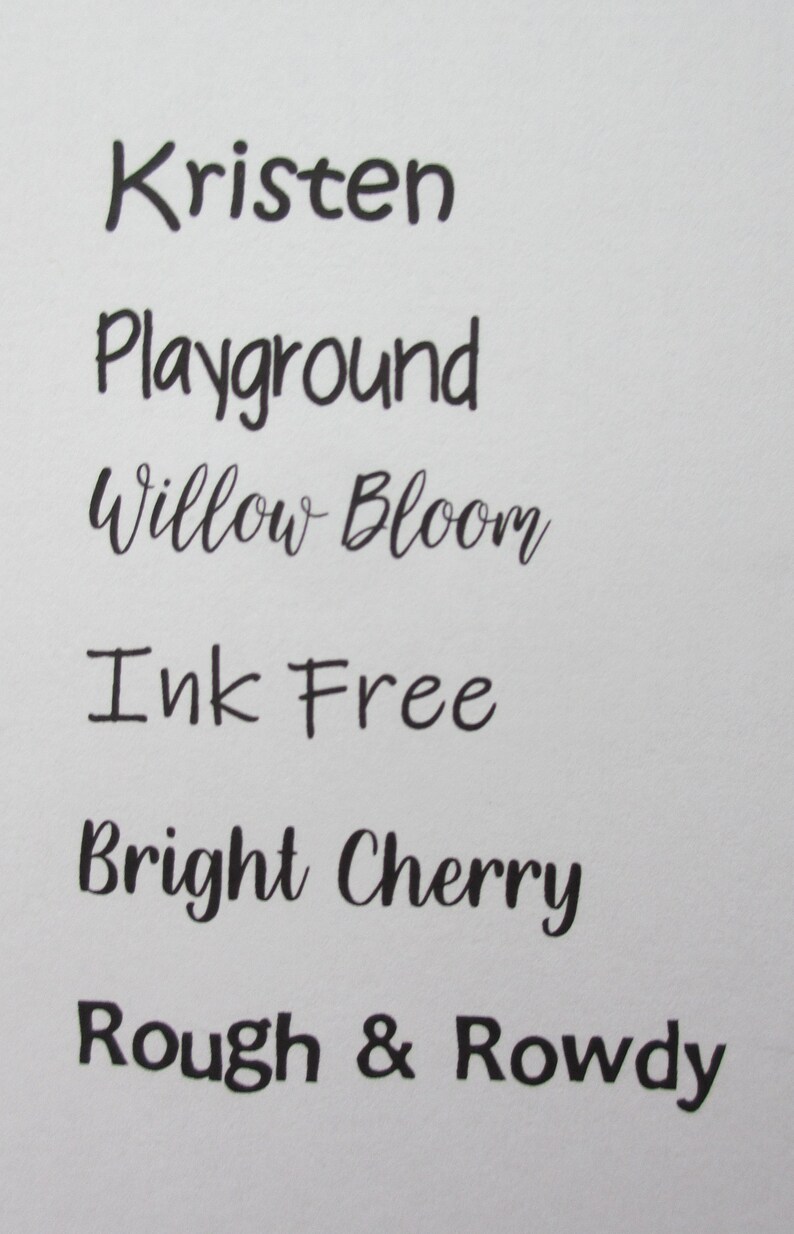 Kristen
Playground
Willow Bloom
Ink Free
Bright Cherry
Rough & Rowdy